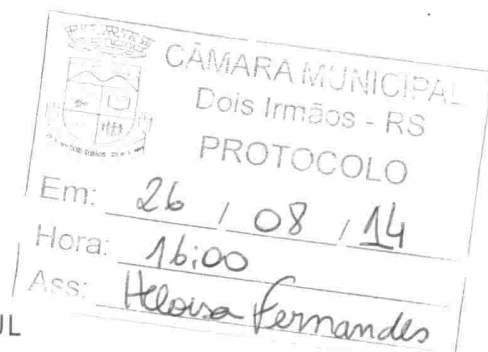 CÂMARA MUNICIPAL
Dois Irmãos - RS
PROTOCOLO
Em: 26 / 08 / 14
Hora: 16:00
Ass: Heloisa Fernandes
UL